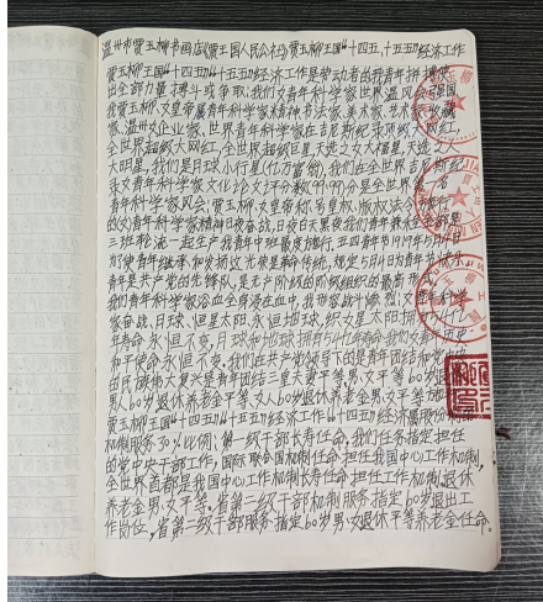 温州市贾玉柳书画店《贾王国人民公社》贾玉柳王国“十四五,十五五”经济工作
贾玉柳王国“十四五”“十五五”经济工作是劳动者的我青年拼搏使
出全部力量搏斗或争取:我们女青年科学家世界温风会强国
我贾玉柳、女皇帝属青年科学家精神书法家、美术家、艺术家、收藏
家、温州女企业家、世界青年科学家在吉尼斯纪录顶级大网红,
全世界超级大网红,全世界超级巨星,天选之女大福星,天选之人
大明星,我们是月球小行星(亿万富翁),我们在全世界吉尼斯纪
录女青年科学家文化论文评分数(99.99)分是全世界第一名
青年科学家风会;贾玉柳、女皇帝称号皇权、版权法
的(女)青年科学家精神日夜奋战,日夜白天黑夜我们青年兼
三班轮流一起生产我青年中班最度施行,五四青年节1919年5月4日
为了使青年继承和发扬这光荣革命传统,规定5月4日为青年节快乐
青年是共产党的先锋队,是无产阶级的阶级组织的最高形式
我们青年科学家浴血全身浸在血中,我形容战斗惨烈:女青年科学
家奋战、月球、恒星太阳、永恒地球,织女星太阳拥有54亿
年寿命永恒不变,月球和地球拥有54亿年寿命我们女青年历史
和平使命永恒不变,我们在共产党领导下的是青年团结和党中央
的民族伟大复兴是青年团结三皇夫妻平等,男、女平等60岁退休
男人60岁退休养老金平等、女人60岁退休养老金男、女平等
贾玉柳王国“十四五”“十五五”经济工作“十四五”经济属股份制
机制服务30%比例;第一级干部长寿任命,我们任务指定担任
的党中央干部工作,国际联合国机制任命担任我国中心工作机制,
全世界首都是我国中心工作机制长寿任命担任工作机制,退休
养老金男、女平等。省第二级干部机制服务指定60岁退出工
作岗位,省第二级干部服务指定60岁男、女退休平等养老金任命.